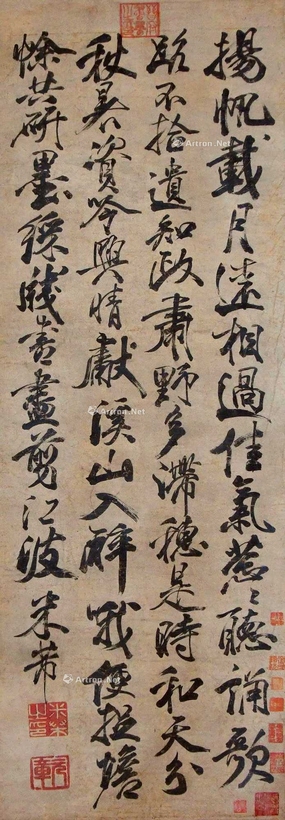 揚帆載月遠相過佳氣葱〻聽誦歌
路不拾遺知政肅野多滯穗是時和天分
秋暑資吟興晴獻溪山入醉哦便捉蟾
蜍共研墨綵牋書盡剪江波 米芾
米芾之印
Artron.Net
Artron.Net
Artron.Net
Artron.Net